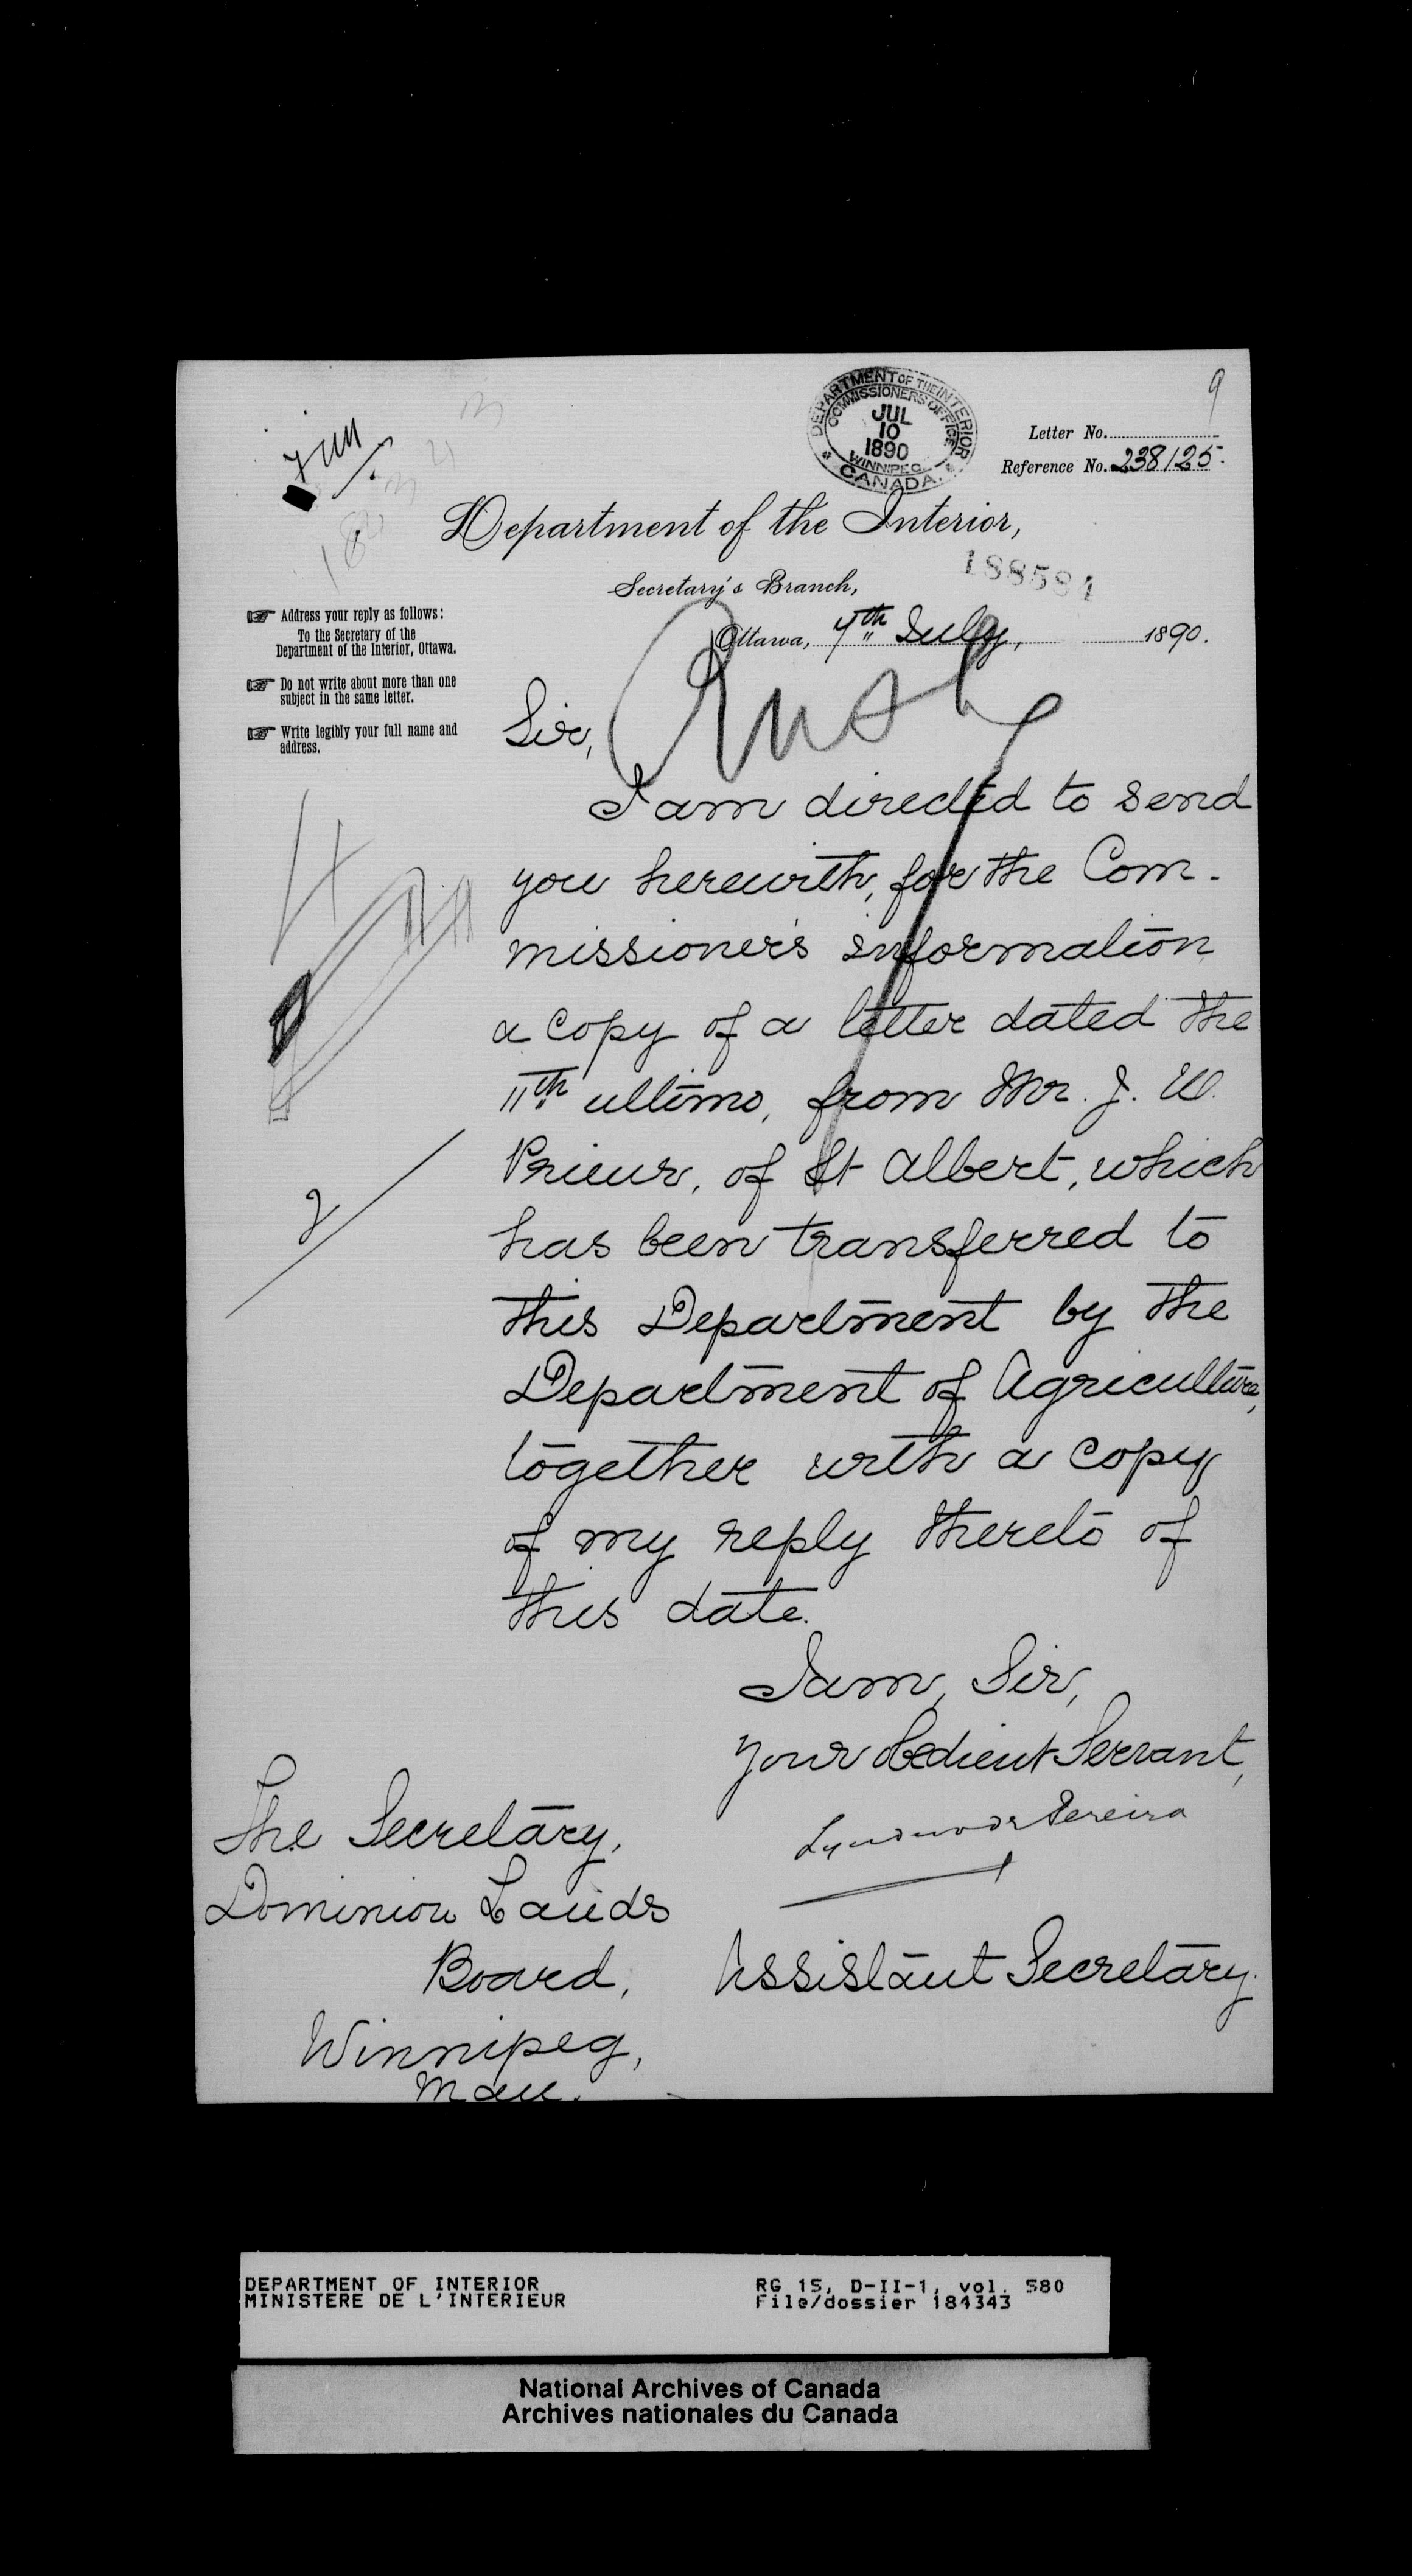 9
DEPARTMENT OF THE INTERIOR
COMMISSIONERS OFFICE
JUL
10
1890
WINNIPEG
CANADA
Letter No.
Reference No. 238125.
Department of the Interior,
188584
Secretary's Branch,
Ottawa, 7th July, 1890.
Address your reply as follows:
To the Secretary of the
Department of the Interior, Ottawa.
Do not write about more than one
subject in the same letter.
Write legibly your full name and
address.
Sir,
I am directed to send
you herewith, for the Com-
missioner's information
a copy of a letter dated the
11th ultimo, from Mr. J. W.
Prieur, of St Albert, which
has been transferred to
this Department by the
Department of Agriculture,
together with a copy
of my reply thereto of
this date.
2
I am, Sir,
Your obedient Servant,
Lyndwode Pereira
Assistant Secretary.
The Secretary,
Dominion Lands
Board,
Winnipeg,
Man.
DEPARTMENT OF INTERIOR
MINISTERE DE L'INTERIEUR
RG 15, D-II-1, vol. 580
File/dossier 184343
National Archives of Canada
Archives nationales du Canada